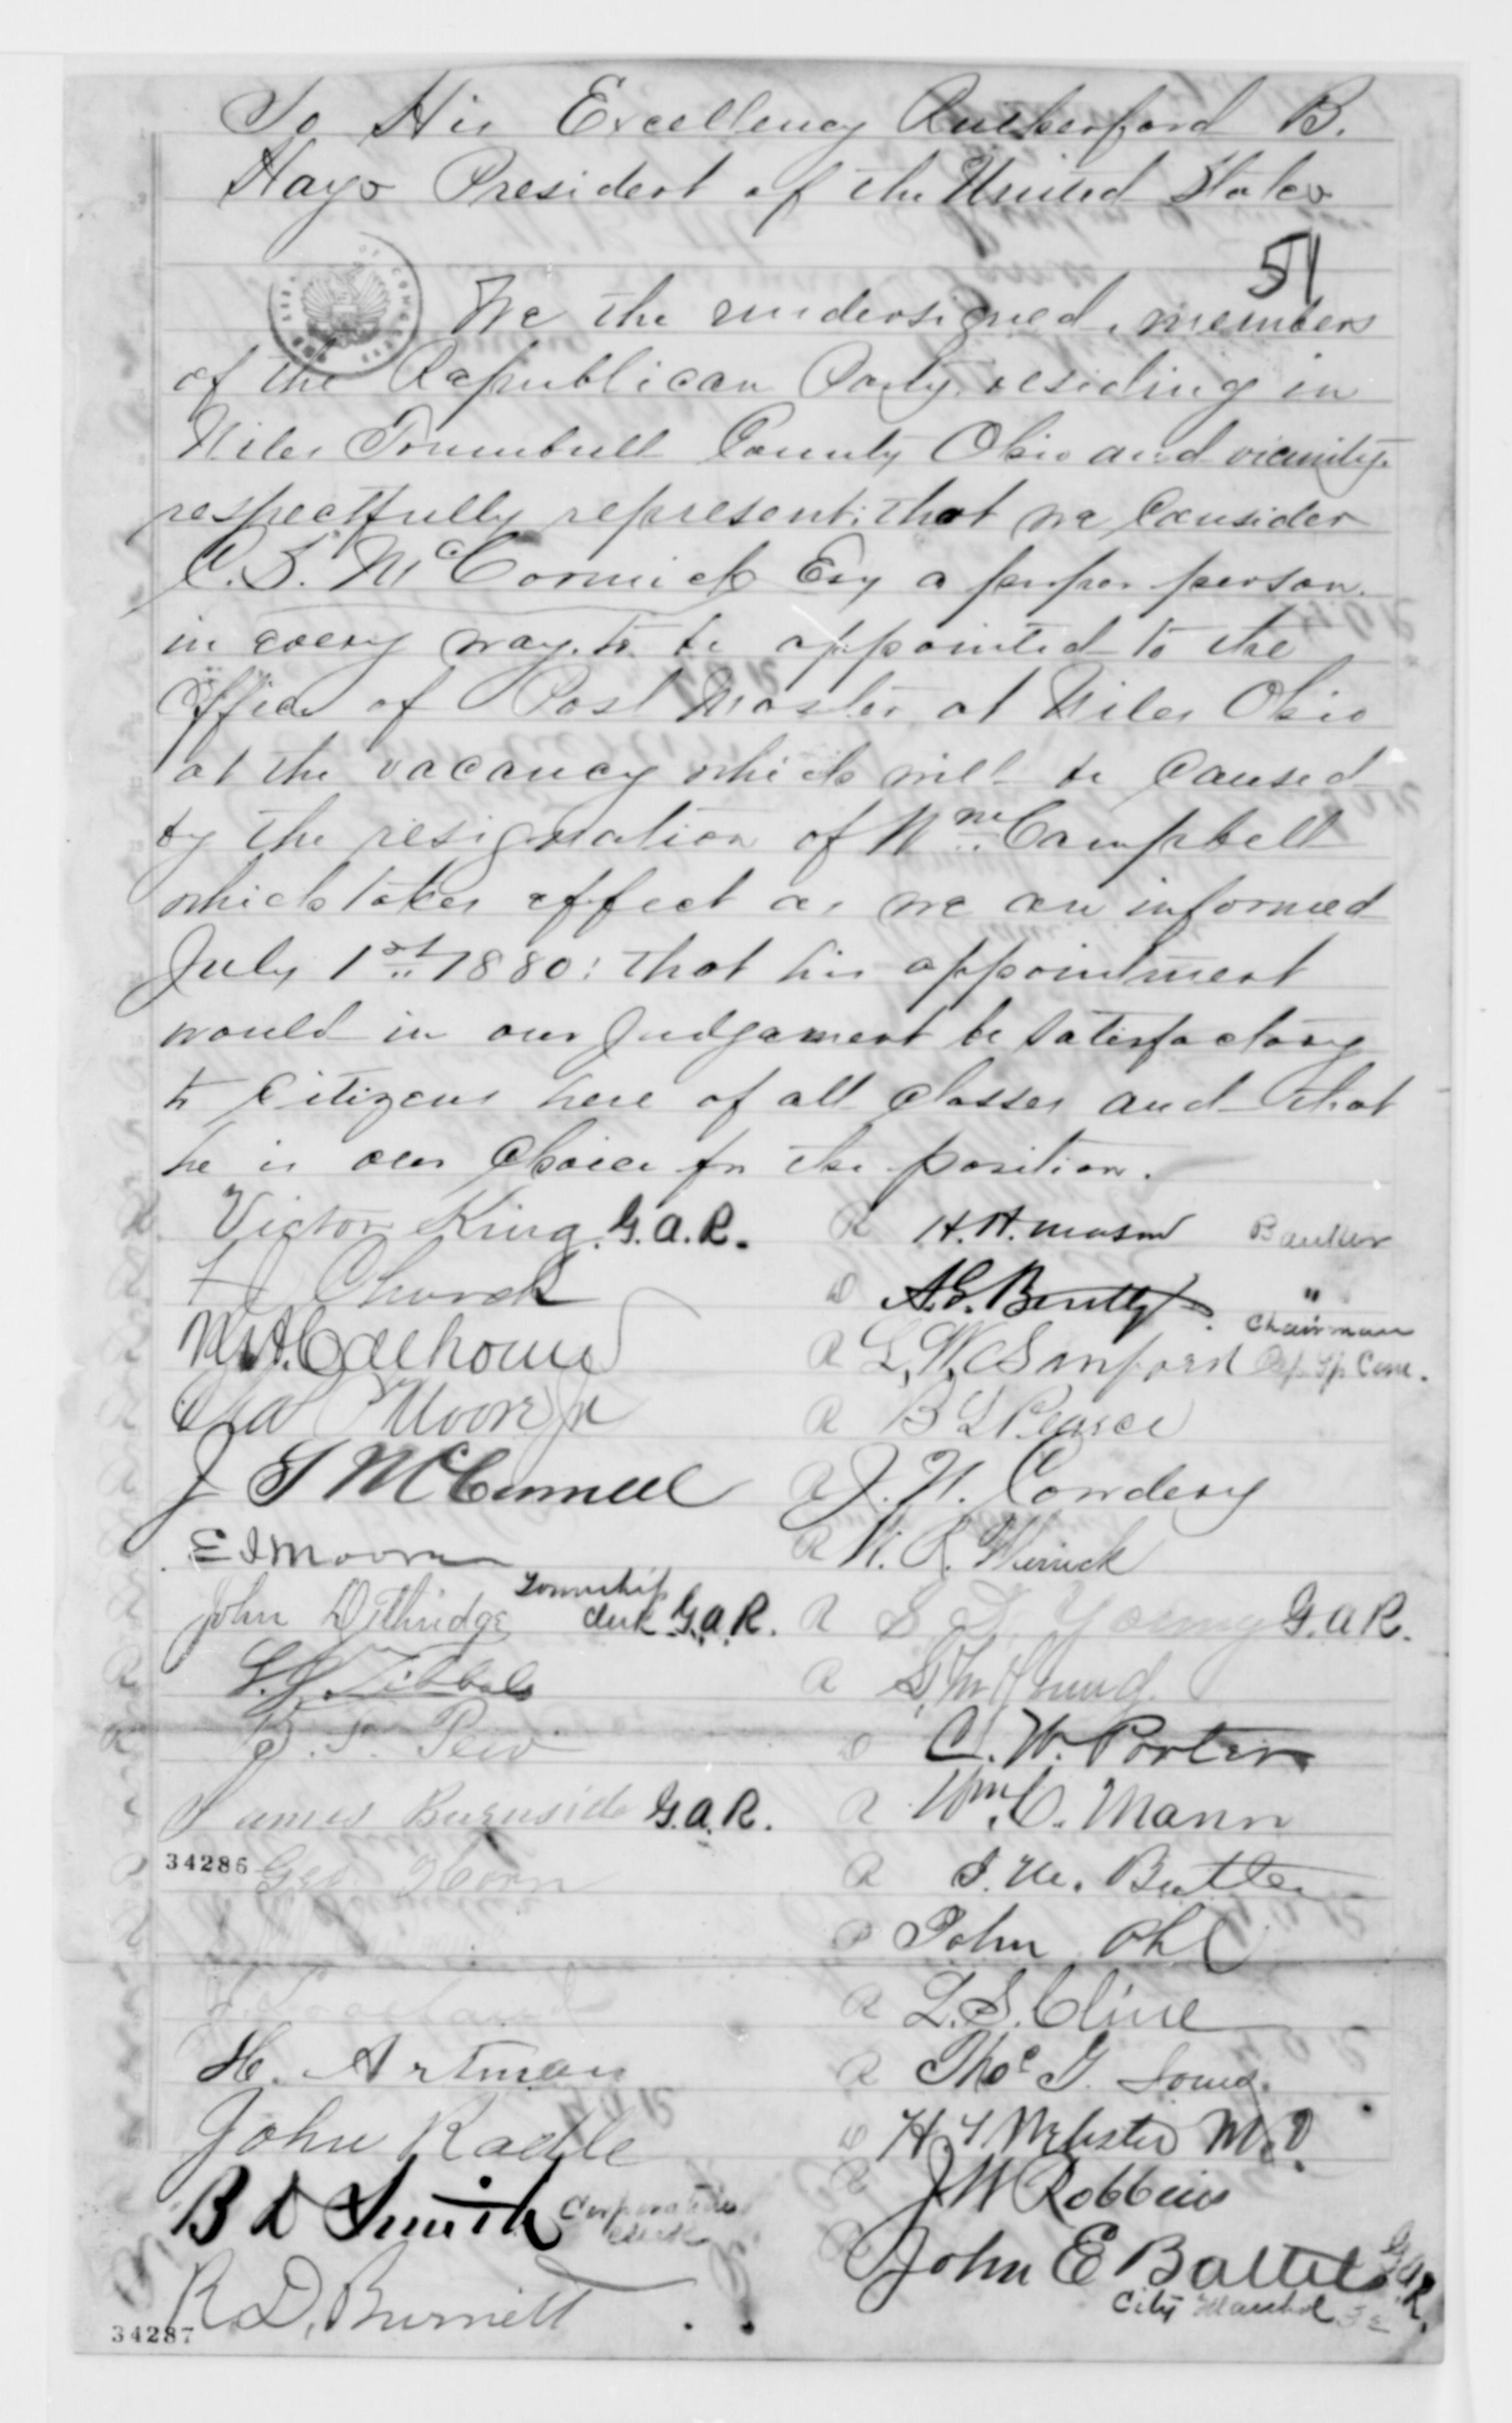 To His Excellency Rutherford B.
Hays President of the United States
51
We the undersigned, members
of the Republican Party residing in
Niles Trumbull County Ohio and vicinity
respectfully represent: that we Consider
C. S. McCormick Esq a proper person
in every way, to be appointed to the
Office of Post Master at Niles Ohio
at the vacancy which will be Caused
by the resignation of Wm Campbell
which takes effect as we are informed
July 1st 1880: that his appointment
would in our Judgement be Satisfactory
to Citizens here of all Classes and that
he is our Choice for the position.
Victor King G.A.R.
Church
Calhoun
Moore Jr
J McConnell
John Township Clerk G.A.R.
Pew
James Burnside G.A.R.
34286 Geo
H. Artman
John Radle
B D Smith Corporation Clerk
R. D. Burnett
34287
R H. H. Mason Banker
D "
R L. W. Sanford Chairman Rep Tp Com.
R B L Pearce
R J. H. Cowdery
R
R S D Young G.A.R.
R
D C. W. Porter
R Wm. C. Mann
R Butler
R John Ohl
R L. S. Cline
R Thos G.
D H Webster M.D.
R J W Robbins
R John E Battel G.A.R.
City Marshal